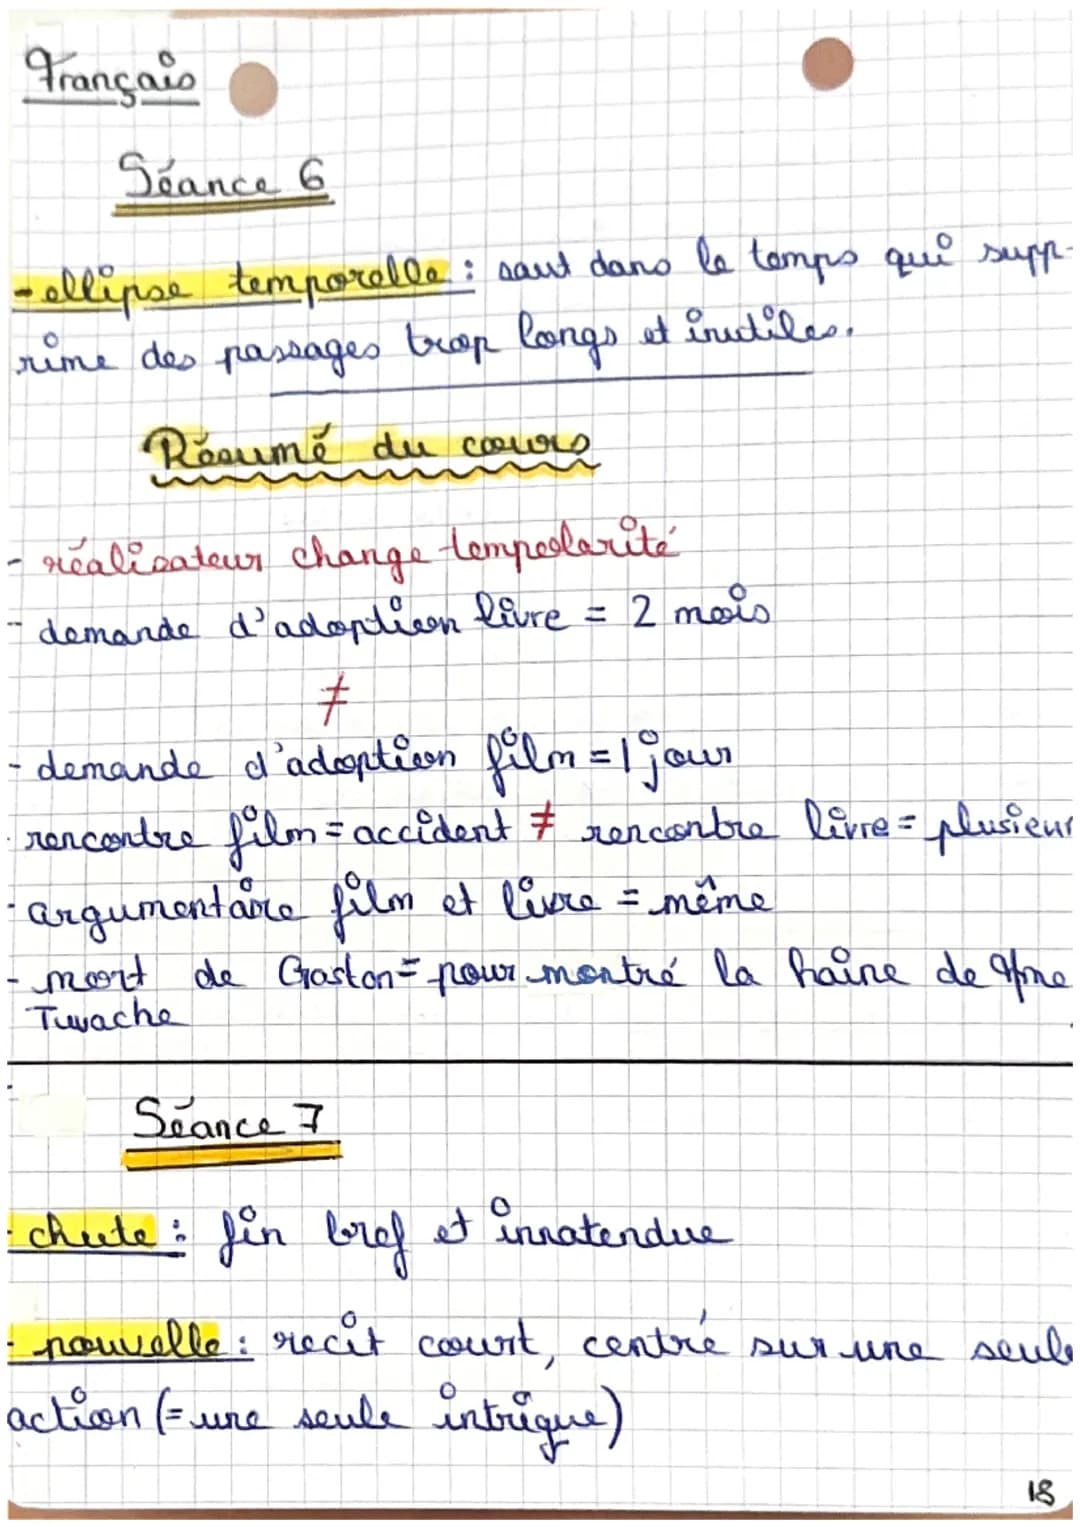 Français
Séance 6
- ellipse temporelle : saut dans le temps qui supp-
rime des passages trop longs et inutiles.
Résumé du cours
- réalisateur change tempolarité
- demande d'adoption livre = 2 mois
≠
- demande d'adoption film = 1 jour
- rencontre film = accident ≠ rencontre livre = plusieur
- argumentaire film et livre = même
- mort de Gaston = pour montré la haine de Mme
Tuvache
Séance 7
- chute : fin bref et innatendue
- nouvelle : recit court, centré sur une seule
action (= une seule intrigue)
18